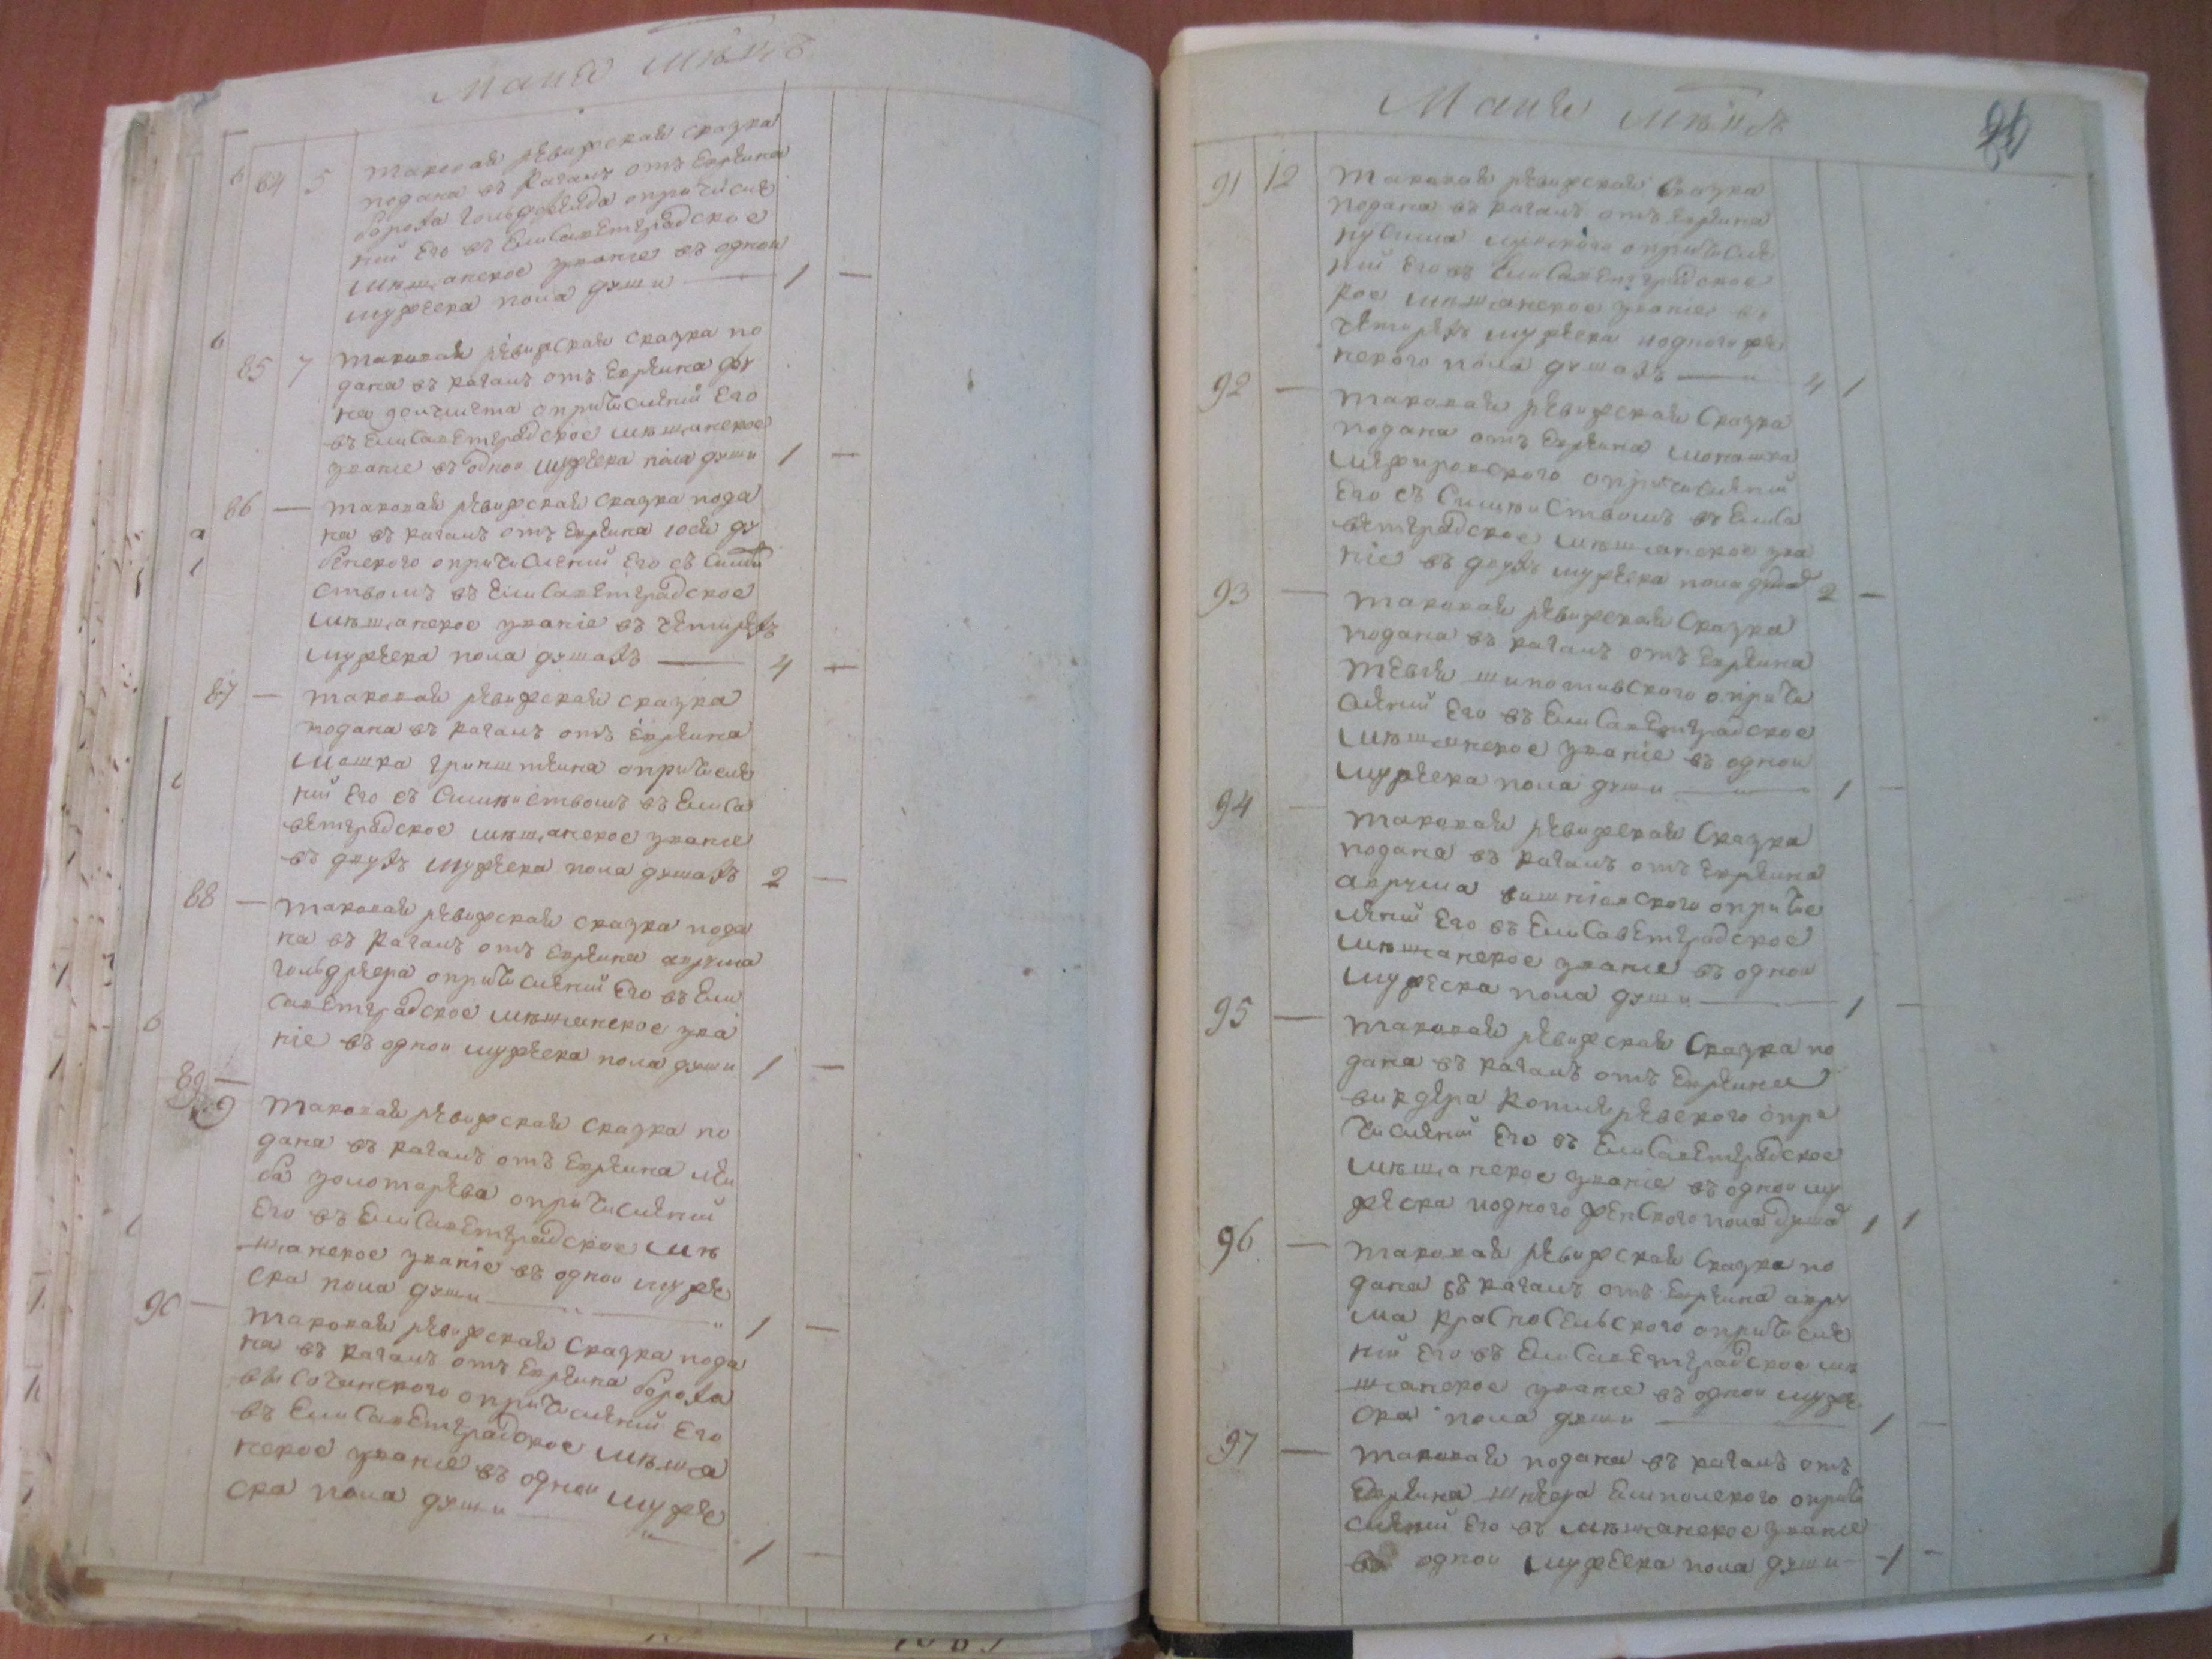 Маия Мѣсяцъ
84 5 Таковая ревижская сказка
подана въ кагалъ отъ Еврѣина
бороха гольдфелда опричисле
нiи Его въ Елисаветградское
мѣщанское званiе въ одной
мужеска пола души — 1 —
85 7 Таковая ревижская сказка по
дана въ кагалъ отъ Еврѣина
опричисленiи Его
въ Елисаветградское мѣщанское
званiе въ одной мужеска пола души 1 —
86 — Таковая ревижская сказка пода
на въ кагалъ отъ Еврѣина Iося ду
бенского опричисленiи Его съ Семѣй
ствомъ въ Елисаветградское
мѣщанское званiе въ четирехъ
мужеска пола душахъ — 4 —
87 — Таковая ревижская сказка
подана въ кагалъ отъ Еврѣина
Мошка гринштеина опричисле
нiи Его съ Семѣйствомъ въ Елиса
ветградское мѣщанское званiе
въ двухъ мужеска пола душахъ 2 —
88 — Таковая ревижская сказка пода
на въ кагалъ отъ Еврѣина аврума
гольдрера опричисленiи Его въ Ели
саветградское мѣщанское зва
нiе въ одной мужеска пола души 1 —
89 — 9 Таковая ревижская сказка по
дана въ кагалъ отъ Еврѣина леи
ба золотарева опричисленiи
Его въ Елисаветградское мѣ
щанское званiе въ одной муже
ска пола души — 1 —
90 — Таковая ревижская сказка пода
на въ кагалъ отъ Еврѣина бороха
высочинского опричисленiи Его
въ Елисаветградское мѣща
нское званiе въ одной муже
ска пола души — 1 —
Маия Мѣсяцъ
91 12 Таковая ревижская сказка
подана въ кагалъ отъ Еврѣина
нусима опричисле
нiи Его въ Елисаветградское
кое мѣщанское званiе въ
четирехъ мужеска иодного же
нского пола душахъ — 4 1
92 — Таковая ревижская Сказка
подана отъ Еврѣина Монашка
межировского опричисленiи
Его съ Семѣйствомъ въ Елиса
ветградское мѣщанское зва
нiе въ двухъ мужеска пола душах 2 —
93 — Таковая ревижская Сказка
подана въ кагалъ отъ Еврѣина
Тевеля шполянского опричи
сленiи Его въ Елисаветградское
мѣщанское званiе въ одной
мужеска пола души — 1 —
94 — Таковая ревижская Сказка
подана въ кагалъ отъ Еврѣина
аврума вишнiовского опричис
ленiи Его въ Елисаветградское
мѣщанское званiе въ одной
мужеска пола души — 1 —
95 — Таковая ревижская Сказка по
дана въ кагалъ отъ Еврѣина
вигдера Котляревского опри
числении Его въ Елисаветградское
мѣщанское званiе въ одной му
жеска иодного женского пола душах 1 1
96 — Таковая ревижская Сказка по
дана въ кагалъ отъ Еврѣина авру
ма Красносельского опричисле
нiи Его въ Елисаветградское мѣ
щанское званiе въ одной муже
ска пола души — 1 —
97 — Таковая подана въ кагалъ отъ
Еврѣина шнеера Ямпольского опричи
сленiи Его въ мѣщанское званiе
въ одной мужеска пола души — 1 —